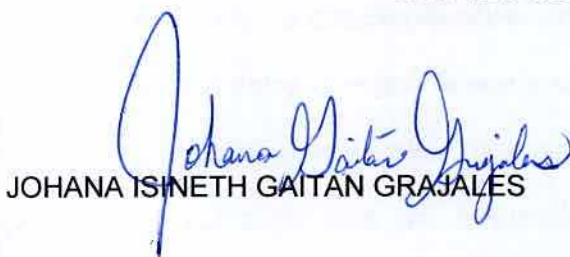 Johana Gaitán Grajales
JOHANA ISINETH GAITAN GRAJALES